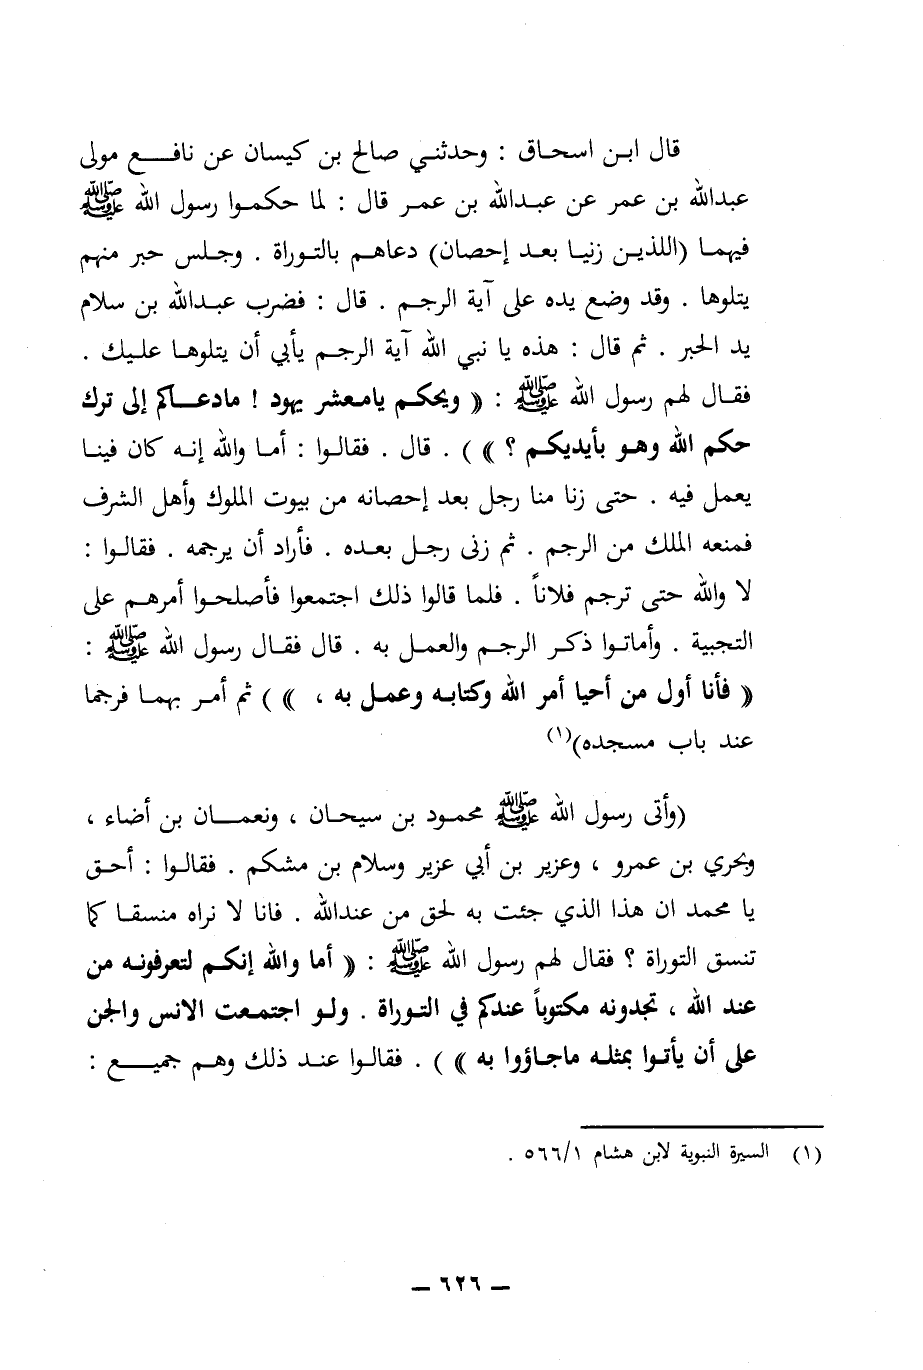 قال ابن اسحاق : وحدثني صالح بن كيسان عن نافع مولى
عبدالله بن عمر عن عبدالله بن عمر قال : لما حكموا رسول الله ﷺ
فيهما (اللذين زنيا بعد إحصان) دعاهم بالتوراة . وجلس حبر منهم
يتلوها . وقد وضع يده على آية الرجم . قال : فضرب عبدالله بن سلام
يد الحبر . ثم قال : هذه يا نبي الله آية الرجم يأبي أن يتلوها عليك .
فقال لهم رسول الله ﷺ : (( ويحكم يامعشر يهود ! مادعاكم إلى ترك
حكم الله وهو بأيديكم ؟ )) ) . قال . فقالوا : أما والله إنه كان فينا
يعمل فيه . حتى زنا منا رجل بعد إحصانه من بيوت الملوك وأهل الشرف
فمنعه الملك من الرجم . ثم زنى رجل بعده . فأراد أن يرجمه . فقالوا :
لا والله حتى ترجم فلاناً . فلما قالوا ذلك اجتمعوا فأصلحوا أمرهم على
التجبية . وأماتوا ذكر الرجم والعمل به . قال فقال رسول الله ﷺ :
(( فأنا أول من أحيا أمر الله وكتابه وعمل به ، )) ) ثم أمر بهما فرجما
عند باب مسجده)(١)
(وأتى رسول الله ﷺ محمود بن سيحان ، ونعمان بن أضاء ،
وبحري بن عمرو ، وعزير بن أبي عزير وسلام بن مشكم . فقالوا : أحق
يا محمد ان هذا الذي جئت به لحق من عندالله . فانا لا نراه منسقا كما
تنسق التوراة ؟ فقال لهم رسول الله ﷺ : (( أما والله إنكم لتعرفونه من
عند الله ، تجدونه مكتوباً عندكم في التوراة . ولو اجتمعت الانس والجن
على أن يأتوا بمثله ماجاؤوا به )) ) . فقالوا عند ذلك وهم جميع :
(١) السيرة النبوية لابن هشام ٥٦٦/١ .
— ٦٢٦ —